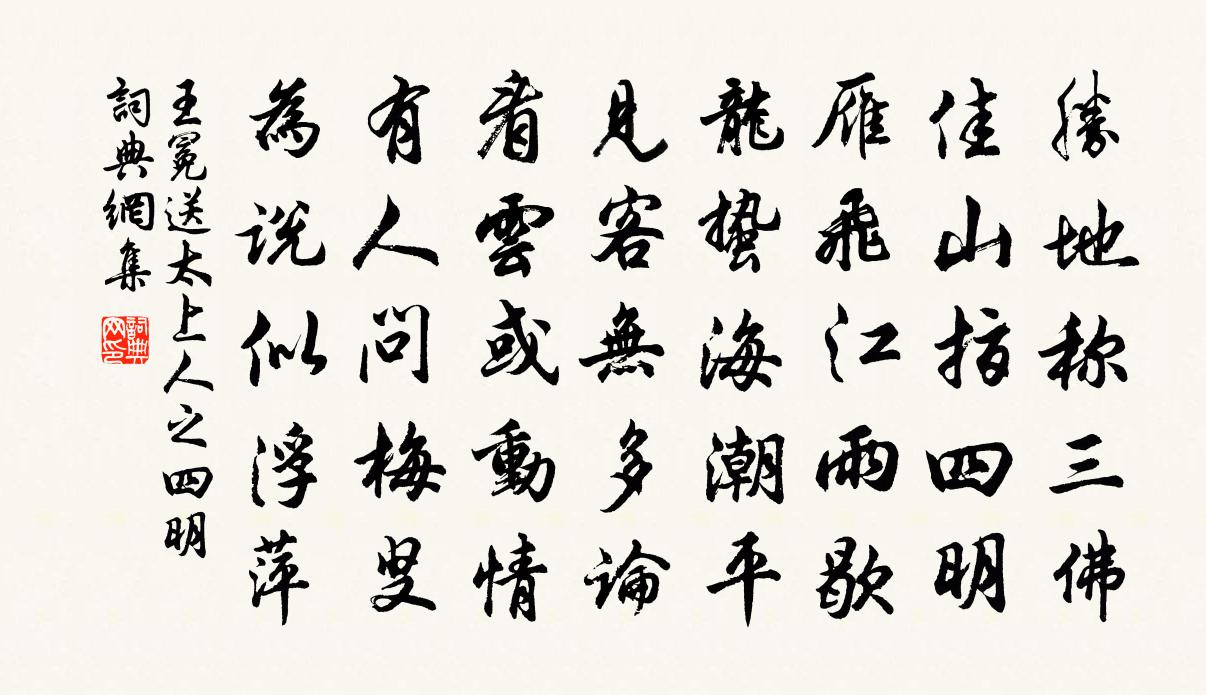 勝地称三佛
佳山指四明
雁飛江雨歇
龍蟄海潮平
見客無多論
看雲或動情
有人問梅叟
為説似浮萍
王冕送太上人之四明
詞典網集
詞典网印